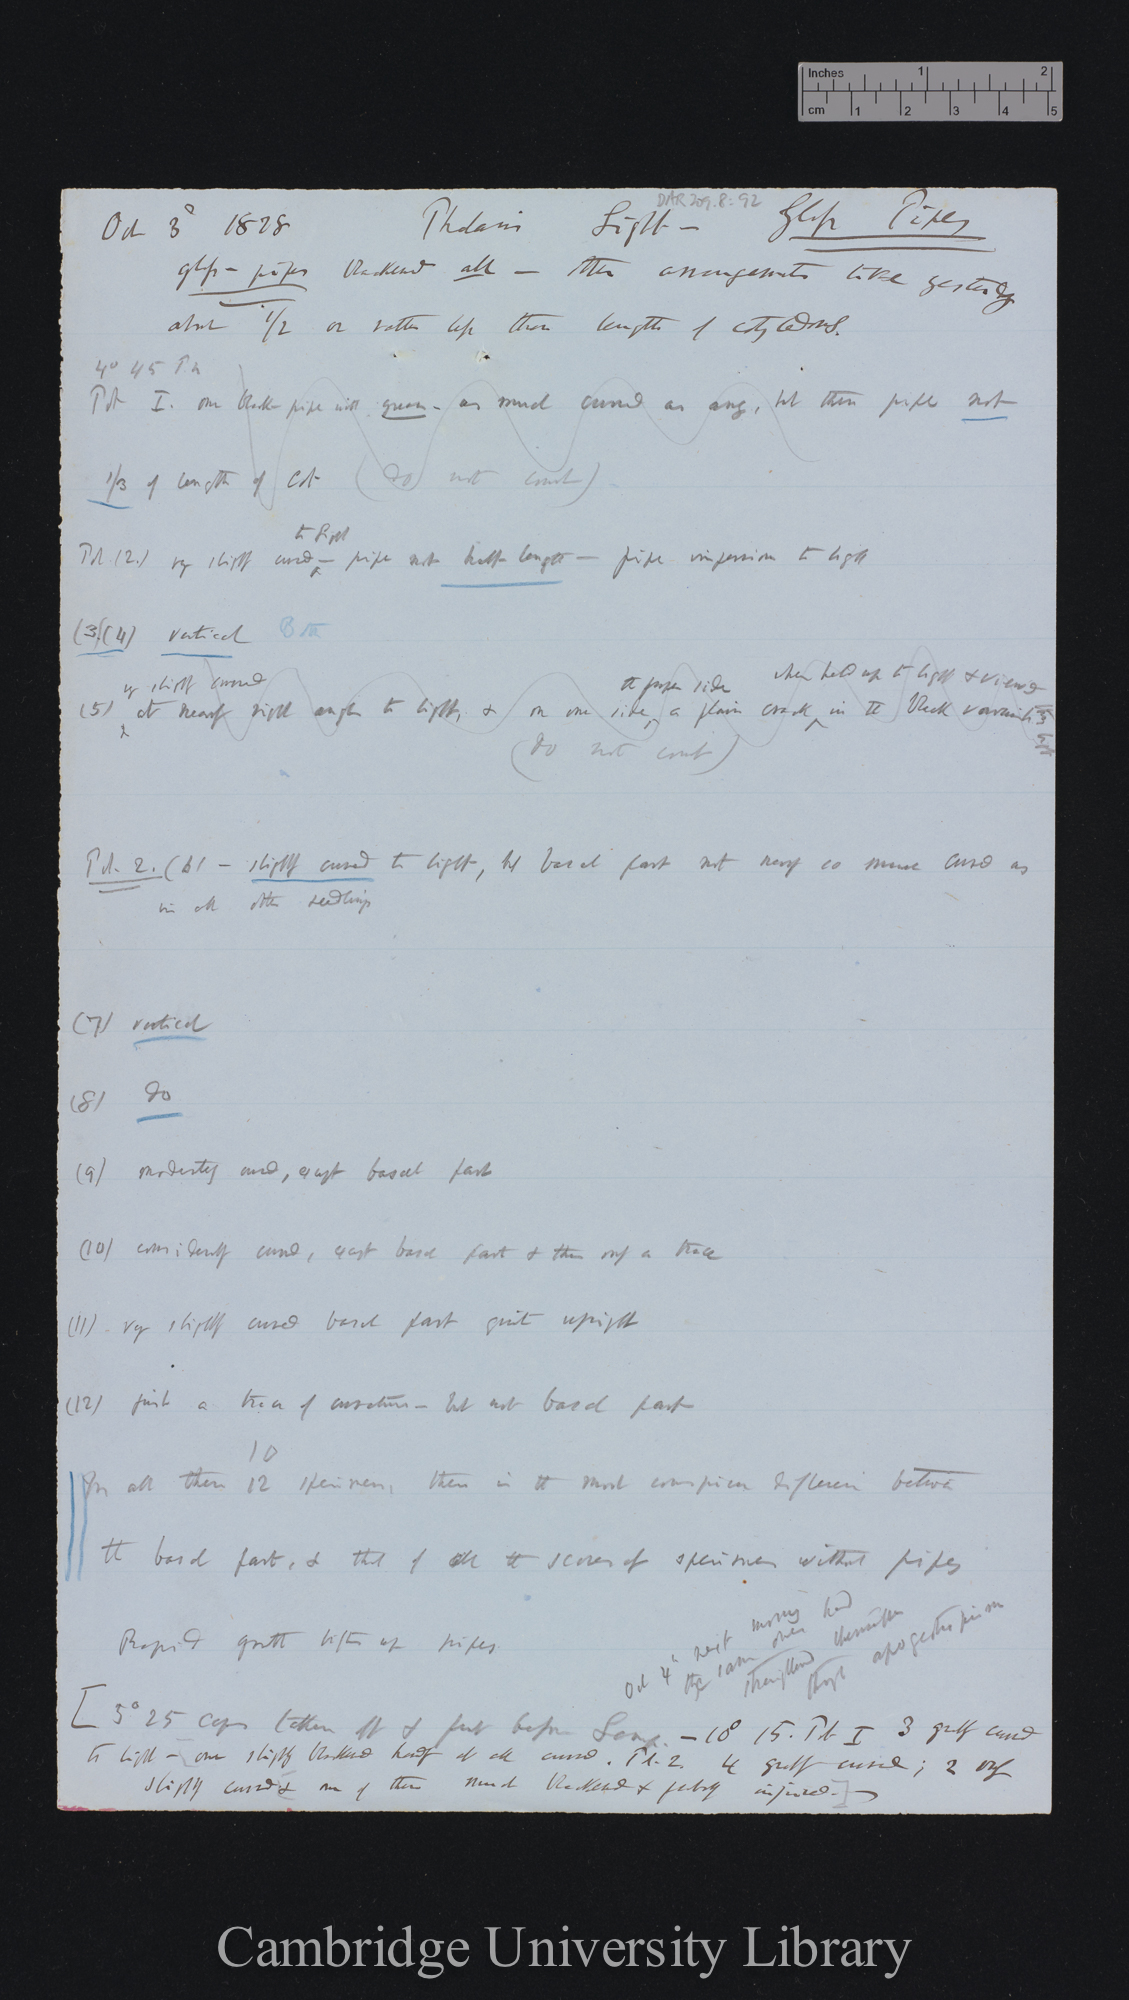 Inches 1 2
cm 1 2 3 4 5
DAR 209.8: 92
Oct 3d 1878 Phalaris Light — Glass Pipes
glass-pipes blackened all — then arrangements like yesterday
about 1/2 or rather less than length of cotyledons.
4° 45 Pm
Pot I. one black pipe with grease — as much curved as any, but then pipe not
1/3 of length of Cot (Do not count)
to light
Pot (2.) very slightly curved — pipe not half length — pipe to light
(3)(4) vertical Both
very slightly curved the proper side when held up to light & viewed
(5) at nearly right angles to light, & on one side, a plain crack in the black varnish
(Do not count)
Pot. 2. (6) — slightly curved to light, but basal part not nearly so much curved as
in all other seedlings
(7) vertical
(8) do
(9) moderately curved, except basal part
(10) considerably curved, except basal part & then only a trace
(11) very slightly curved basal part quite upright
(12) just a trace of curvature — but not basal part
10
In all these 12 specimens there is the most conspicuous difference between
the basal part, & that of all the scores of specimens without pipes
Rapid growth lifts up pipes.
Oct 4th next morning had
the same ones
straightened themselves
through apogeotropism
[3° 25 caps taken off & put before Lamp. — 10° 15. Pot I 3 greatly curved
to light — one slightly blackened hardly at all curved. Pot. 2. 4 greatly curved; 2 only
slightly curved & one of them much blackened & probably injured.]
Cambridge University Library